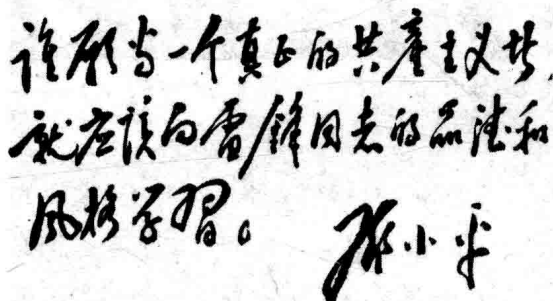 谁愿当一个真正的共產主义者，
就应該向雷锋同志的品德和
风格学習。
邓小平